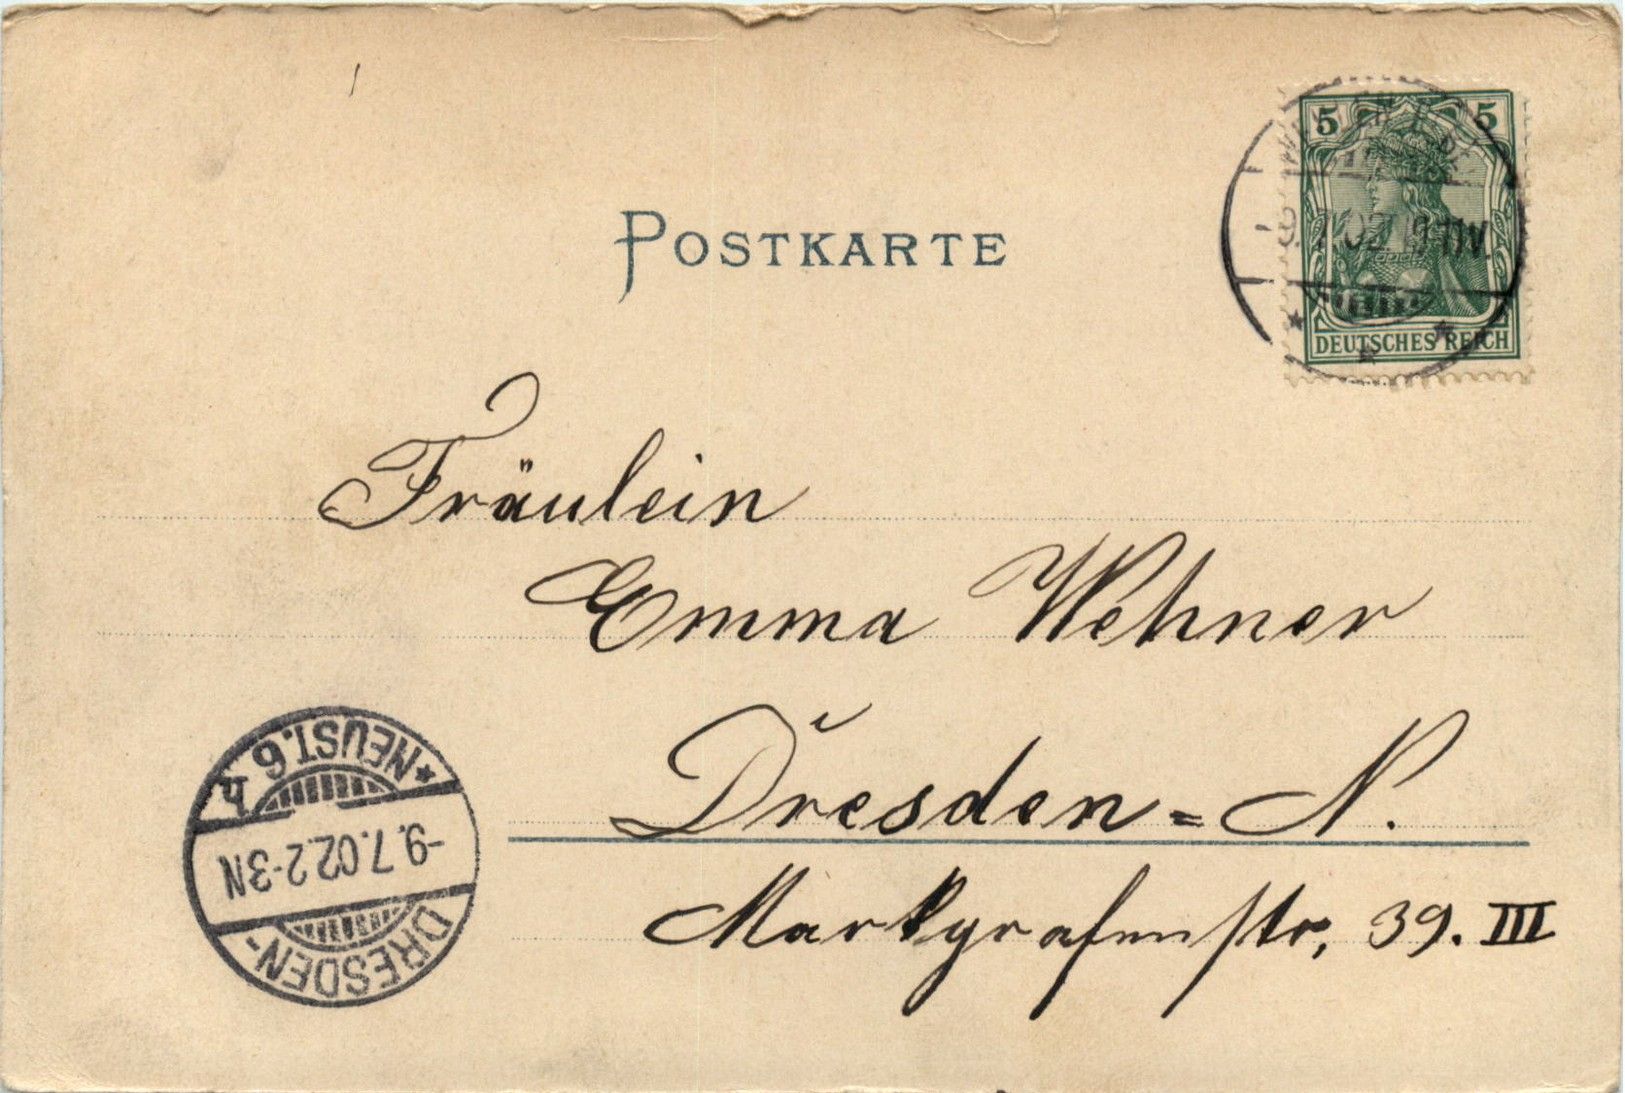 POSTKARTE
5 5
DEUTSCHES REICH
Fräulein
Emma Wehner
Dresden=N.
Markgrafenstr, 39. III
*NEUST.6 h
-9.7.02.2-3N
DRESDEN-